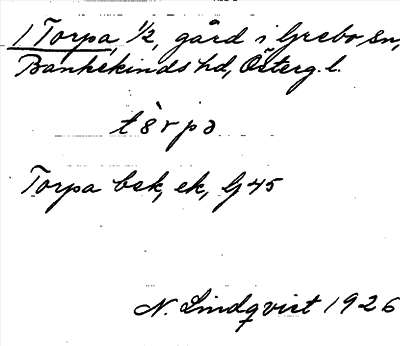 1 Torpa, 1/2, gård i Grebo sn,
Bankekinds hd, Österg. l.
tòrpə
Torpa bsk, ek, Gj 45
N. Lindqvist 1926